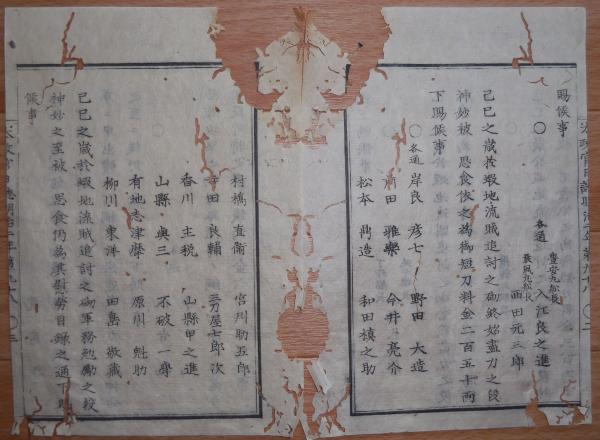 賜候事
〇 各通 豊安丸船長 入江良之進
長風丸船長 西田元三郎
己巳之歳於蝦地流賊追討之砌終始盡力之段
神妙被 思食依之為御短刀料金二百五十両
下賜候事
〇 各通 岸良 彦七 野田 大造
田 雅樂 今井 亮介
松本 鼎造 和田槙之助
村橋 直衛 宮川助五郎
田 良輔 三刀屋七郎次
香川 主税 山縣甲之進
山縣 奥三 不破 一學
有地志津摩 原川 魁助
柳川 東洋 田島 敬蔵
己巳之歳於蝦地流賊追討之砌軍務勉勵之段
神妙之至被 思食仍為其慰労目録之通下賜
候事